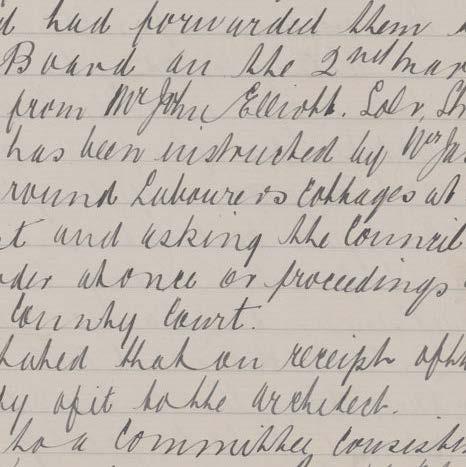 d had forwarded them
Board on the 2nd Mar
from Mr John Elliott. Solr, St
has been instructed by Mr Ja
round Labourers Cottages at
t and asking the Council
order at once or proceedings
County Court.
stated that on receipt of th
py of it to the Architect.
to a Committee consistin